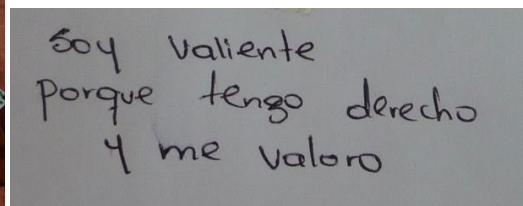 Soy valiente
porque tengo derecho
y me valoro